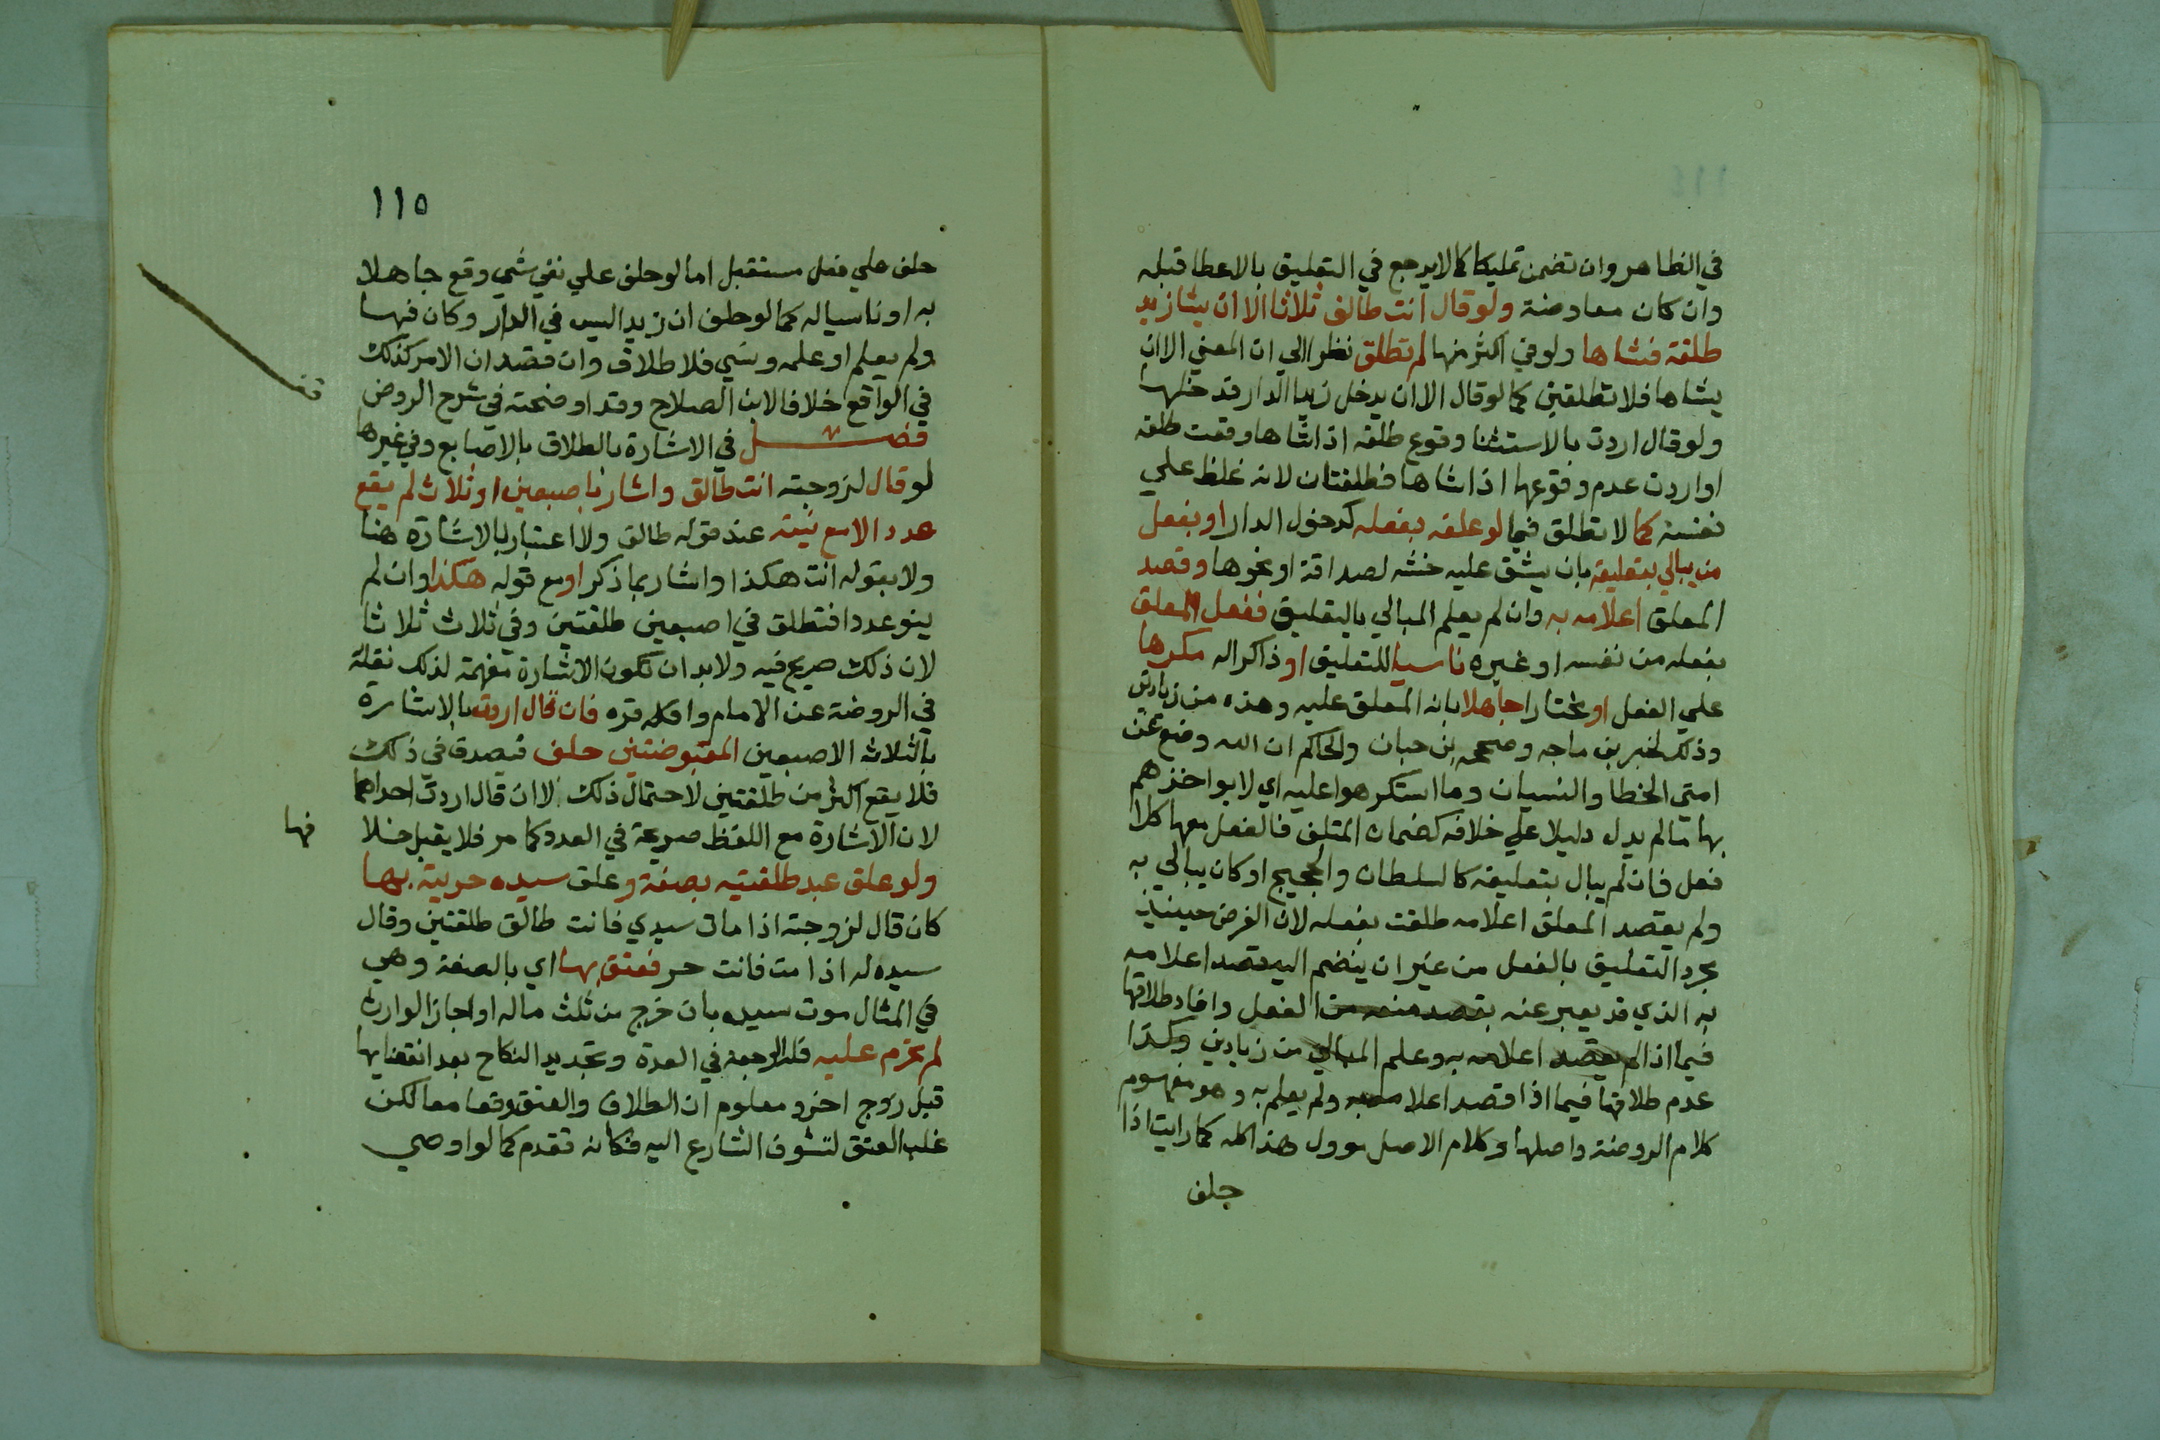 في الظاهر وان تضمن تمليكا كما لا يرجع في التعليق بالاعطا قبله
وان كان معاوضة ولو قال انت طالق ثلاثا الا ان يشا زيد
طلقة فشاها ولو في اكثر منها لم تطلق نظرا الي ان المعني الا ان
يشاها فلا تطلقين كما لو قال الا ان يدخل زيد الدار فدخلها
ولو قال اردت بالاستثنا وقوع طلقه اذا شاها وقعت طلقه
او اردت عدم وقوعها اذا شاها فطلقتان لانه غلظ علي
نفسه كما لا تطلق فيما لو علقه بفعله كدخول الدار او بفعل
من يبالي بتعليقه بان يشق عليه حنثه لصداقة او نحوها وقصد
المعلق اعلامه به وان لم يعلم المبالي بالتعليق ففعل المعلق
بفعله من نفسه او غيره ناسيا للتعليق او ذاكرا له مكرها
علي الفعل او مختارا جاهلا بانه المعلق عليه وهذه من زيادتي
وذلك لخبر بن ماجه وصححه بن حبان والحاكم ان الله وضع عن
امتي الخطا والنسيان وما استكرهوا عليه اي لا يواخذهم
بها ما لم يدل دليلا علي خلافه كضمان المتلف فالفعل معها كلا
فعل فان لم يبال بتعليقه كالسلطان والحجيج او كان يبالي به
ولم يقصد المعلق اعلامه طلقت بفعله لان الغرض حينئذ
مجرد التعليق بالفعل من غير ان ينضم اليه قصد اعلامه
به الذي قد يعبر عنه بقصد منعه من الفعل وافاد طلاقها
فيما اذا لم يقصد اعلامه به وعلم المبالي من زيادتي وكذا
عدم طلاقها فيما اذا قصد اعلامه به ولم يعلم به وهو مفهوم
كلام الروضة واصلها وكلام الاصل موول هذا كله كما رايت اذا
حلف
١١٥
حلف علي فعل مستقبل اما لو حلف علي نفي شي وقع جاهلا
به او ناسيا له كما لو حلف ان زيدا ليس في الدار وكان فيها
ولم يعلم او علمه ونسي فلا طلاق وان قصد ان الامر كذلك
في الواقع خلافا لابن الصلاح وقد اوضحته في شرح الروض
فصل في الاشارة بالطلاق بالاصابع وفي غيرها
لو قال لزوجته انت طالق واشار باصبعين او ثلاث لم يقع
عدد الا مع نيته عند قوله طالق ولا اعتبار بالاشارة هنا
ولا بقوله انت هكذا واشار بما ذكر او مع قوله هكذا وان لم
ينو عددا فتطلق في اصبعين طلقتين وفي ثلاث ثلاثا
لان ذلك صريح فيه ولابد ان تكون الاشارة مفهمة لذلك نقله
في الروضة عن الامام واقره فان قال اردت بالاشارة
بالثلاث الاصبعين المقبوضتين حلف فيصدق في ذلك
فلا يقع اكثر من طلقتين لاحتمال ذلك لا ان قال اردت احداهما
لان الاشارة مع اللفظ صريحة في العدد كما مر فلا يقبل خلا
فها
ولو علق عبد طلقتيه بصفة وعلق سيده حريته بها
كان قال لزوجته اذا مات سيدي فانت طالق طلقتين وقال
سيده له اذا مت فانت حر فعتق بها اي بالصفة وهي
في المثال موت سيده بان خرج من ثلث ماله او اجاز الوارث
لم تحرم عليه فله الرجعة في العدة وتجديد النكاح بعد انقضايها
قبل زوج اخر ومعلوم ان الطلاق والعتق وقعا معا لكن
غلب العتق لتشوف الشارع اليه فكانه تقدم كما لو اوصي